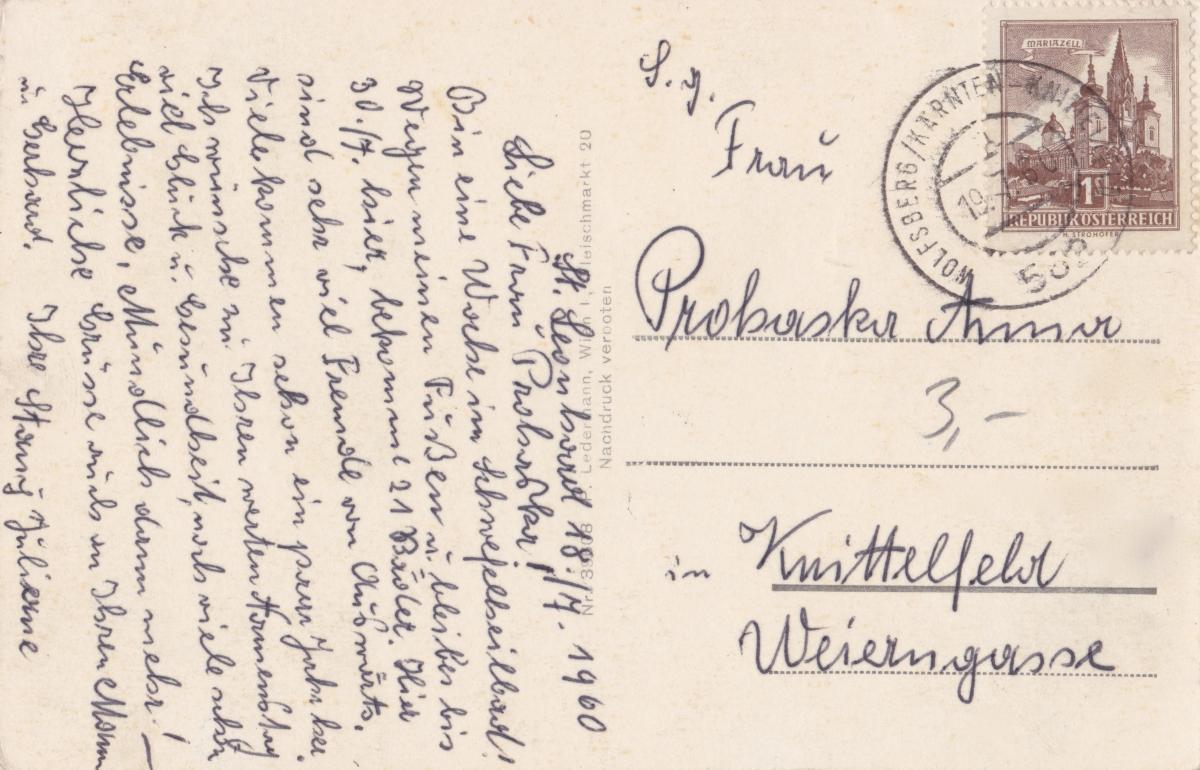 St. Leonhard 18./7. 1960
Liebe Frau Probaska!
Bin eine Woche im Schwefelheilbad!
Wegen meinen Füßen u. bleibe bis
30./7. hier, bekomme 21 Bäder. Hier
sind sehr viel Fremde von Auswärts.
Viele kommen schon ein paar Jahr her.
Ich wünsche zu Ihren werten Namenstag
viel Glück u. Gesundheit, noch viele schö
Erlebnisse, Mündlich dann mehr! –
Herzliche Grüsse auch an Ihren Mann
u. Gerhard. Ihre Stany Julienne
Ledermann, Wien I, Fleischmarkt 20
Nachdruck verboten
S. g.
Frau
Probaska Anna
3,-
in Knittelfeld
Weierngasse
MARIAZELL
1
REPUBLIK ÖSTERREICH
H. STROHOFER
WOLFSBERG/KÄRNTEN